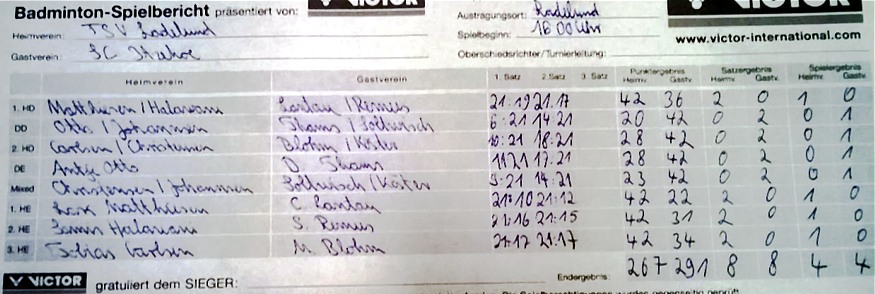 Badminton-Spielbericht präsentiert von: VICTOR
Austragungsort: Radelund
Heimverein: TSV Ladelund
Spielbeginn: 16 00 Uhr
www.victor-international.com
Gastverein: SC Itzehoe
Oberschiedsrichter/Turnierleitung:
Heimverein Gastverein 1. Satz 2. Satz 3. Satz Punktergebnis Heimv. Gastv. Satzergebnis Heimv. Gastv. Spielergebnis Heimv. Gastv.
1. HD Matthiesen / Halawani Lantau / Remus 21:19 21:17 42 36 2 0 1 0
DD Otto / Johannsen Thams / Söllwisch 6:21 14:21 20 42 0 2 0 1
2. HD Carlsen / Christiansen Blohm / Köster 10:21 18:21 28 42 0 2 0 1
DE Antje Otto D. Thams 11:21 17:21 28 42 0 2 0 1
Mixed Christiansen / Johannsen Söllwisch / Köster 9:21 14:21 23 42 0 2 0 1
1. HE Matthiesen C. Lantau 21:10 21:12 42 22 2 0 1 0
2. HE Halawani S. Remus 21:16 21:15 42 31 2 0 1 0
3. HE Tobias Carlsen M. Blohm 21:17 21:17 42 34 2 0 1 0
Endergebnis: 267 291 8 8 4 4
VICTOR gratuliert dem SIEGER: